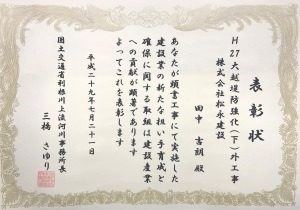 表彰状
H27大越堤防強化(下)外工事
株式会社松永建設
田中 吉朗 殿
あなたが頭書工事にて実施した
建設業の新たな担い手育成と
確保に関する取組は建設産業
への貢献が顕著であります
よってこれを表彰します
平成二十九年七月二十一日
国土交通省利根川上流河川事務所長
三橋 さゆり